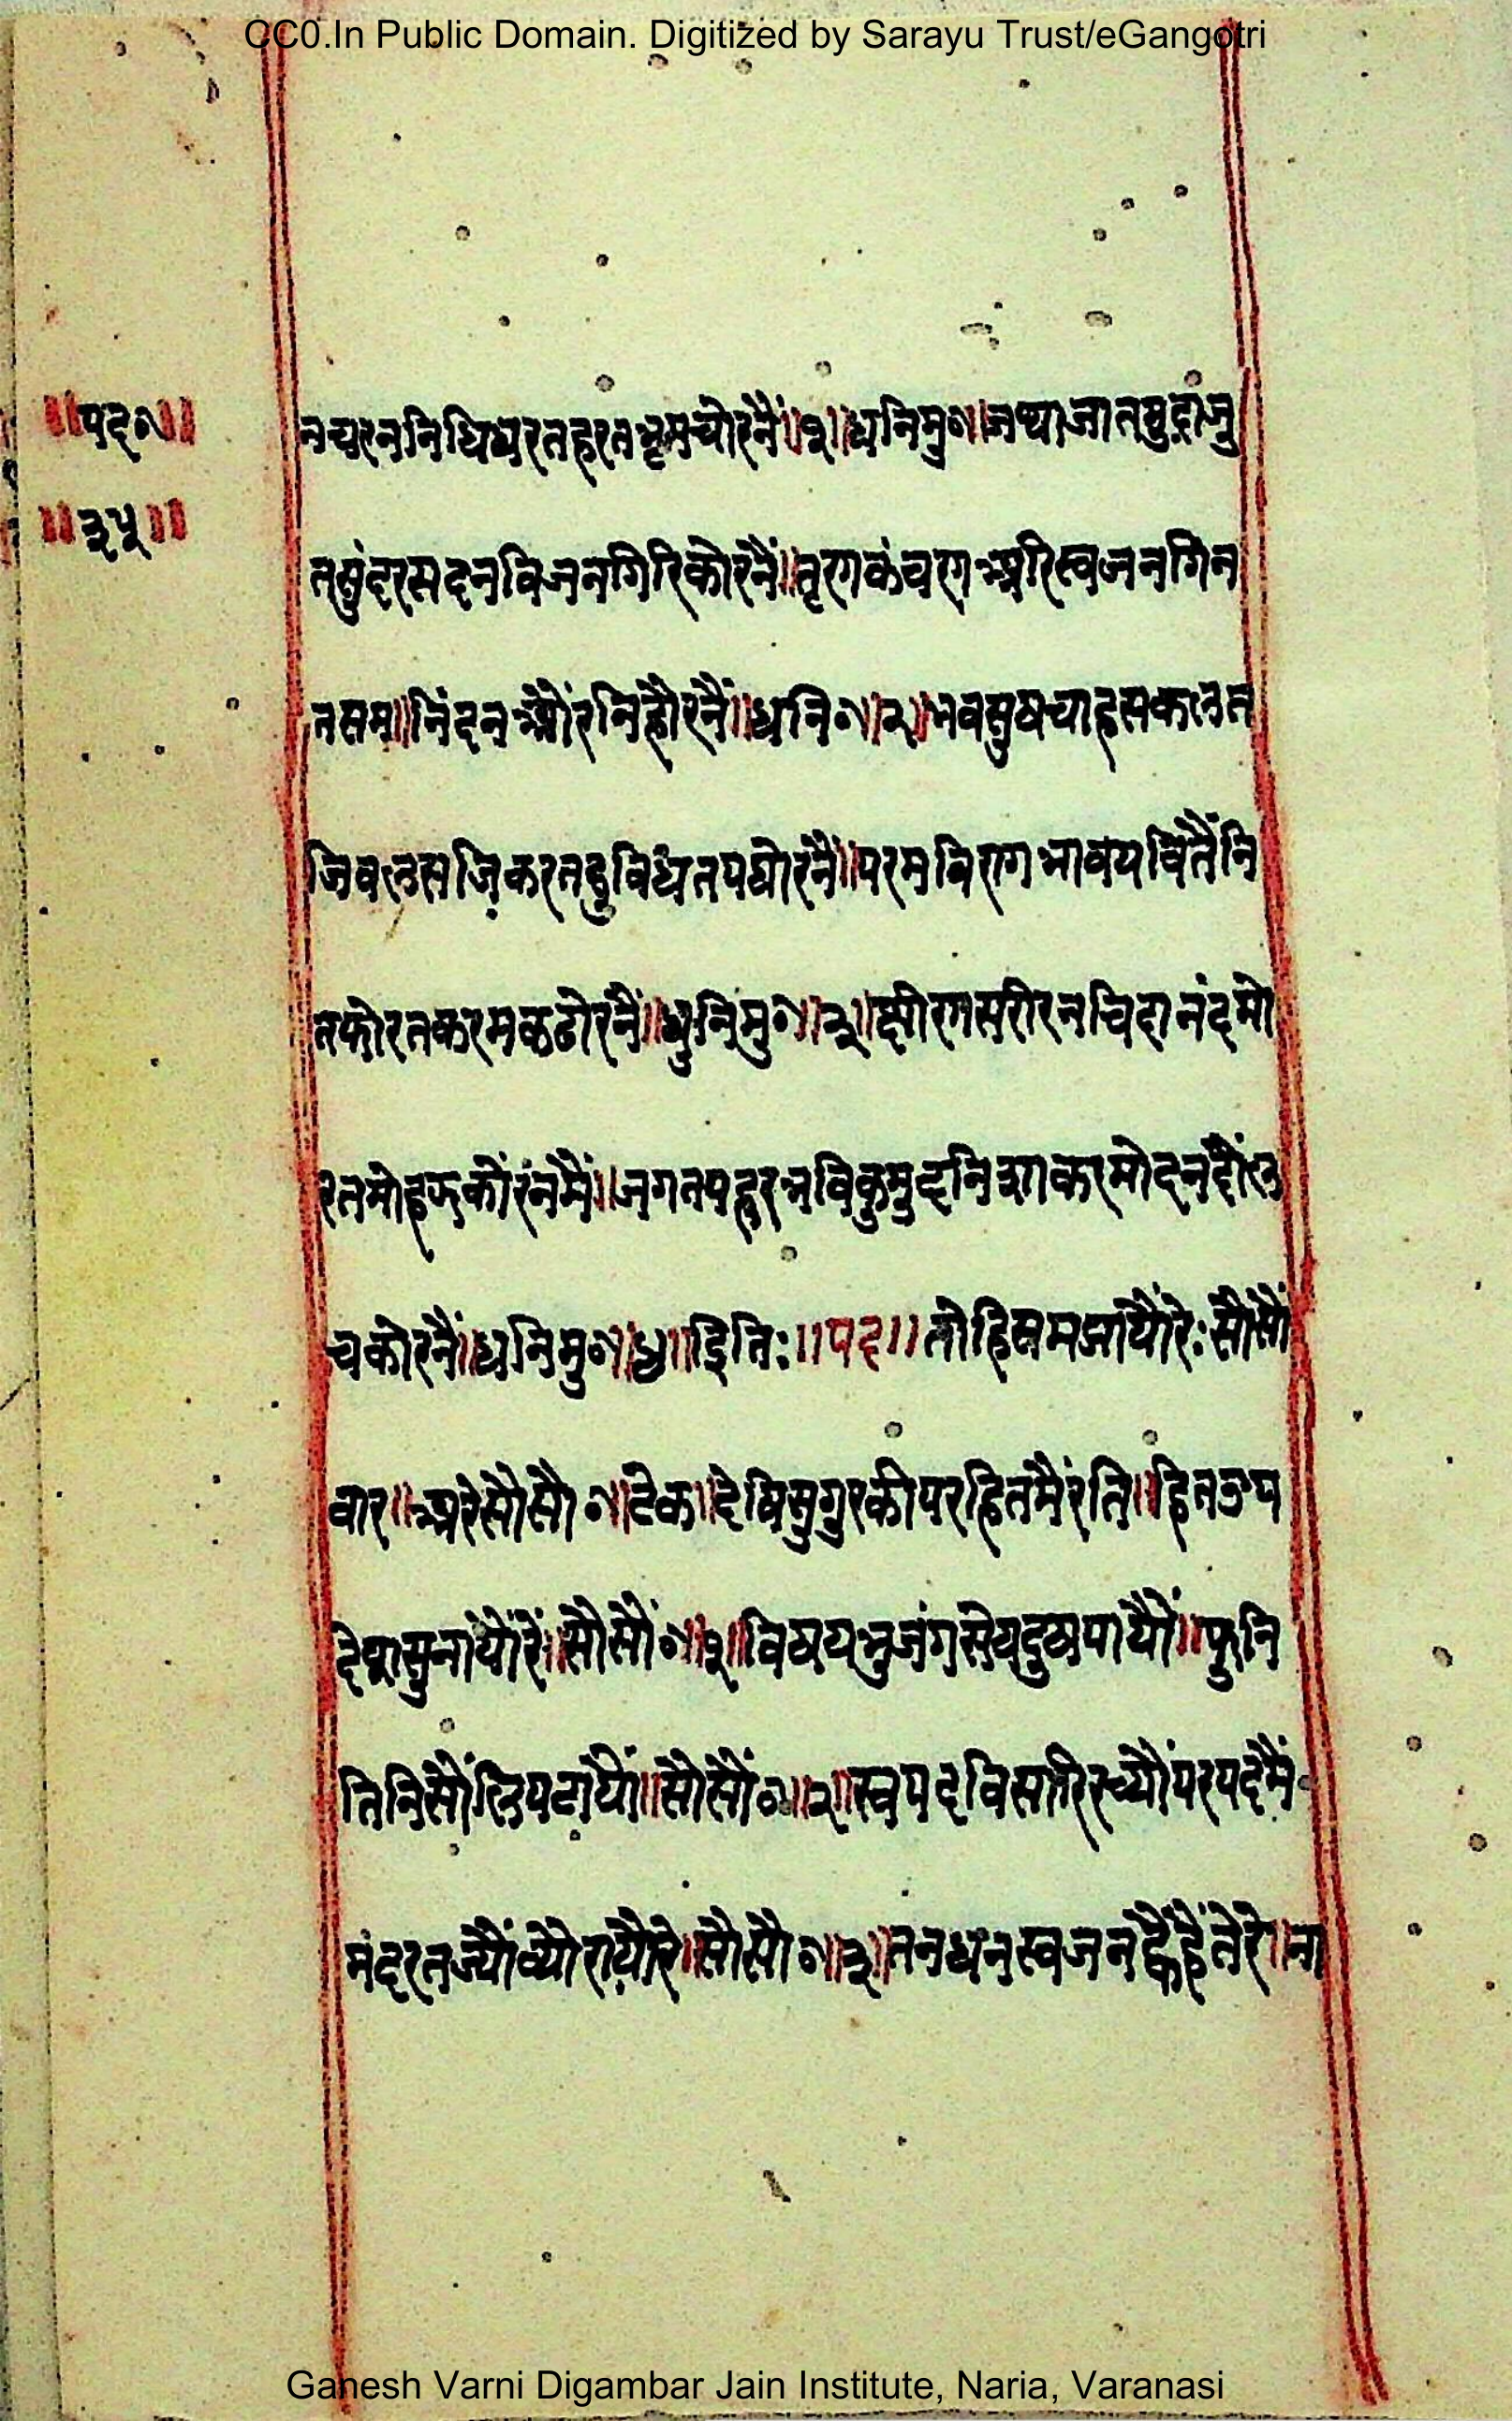 CC0.In Public Domain. Digitized by Sarayu Trust/eGangotri
॥पद०॥
॥३५॥
नचरननिधिधरतहरतभ्रमचोरनैं॥१॥धनिमु०॥जथाजातमुद्राजु
तसुंदरसदनविजनगिरिकोरनैं॥तृणकंचणअरिस्वजनगिन
नसम॥निंदनऔंरनिहौरनैं॥धनि०॥२॥भवसुषचाहसकलत
जिबलसजिकरतदुविधतपघोरनैं॥परमविरागभावपवितैंनि
तफोरतकरमकठोरनैं॥धुनिमु०॥३॥छीरणसरीरनचिदानंदमो
रतमोहझकोंरंनमैं॥जगतपहरभविकुमुदनिशाकरमोदनदौंल
चकोरनैं॥धनिमु०॥४॥इति:॥पद॥तोहिसमझायौंरे:सौसौं
वार॥अरेसौसौ०॥टेक॥देषिसुगुरकीपरहितमैंरंति॥हितउप
देशसुनांयौंरें॥सौसौं०॥१॥विषयभुजंगसेयदुषपायौं॥पुनि
तिनिसौंलिपटांयौं॥सौसौं०॥२॥स्वपदविसारिरच्यौंपरपदमैं
मंदरतज्यौंव्योरायौरे॥सौसौ०॥३॥तनधनस्वजनन्हैंहैंतेरे॥ना
Ganesh Varni Digambar Jain Institute, Naria, Varanasi